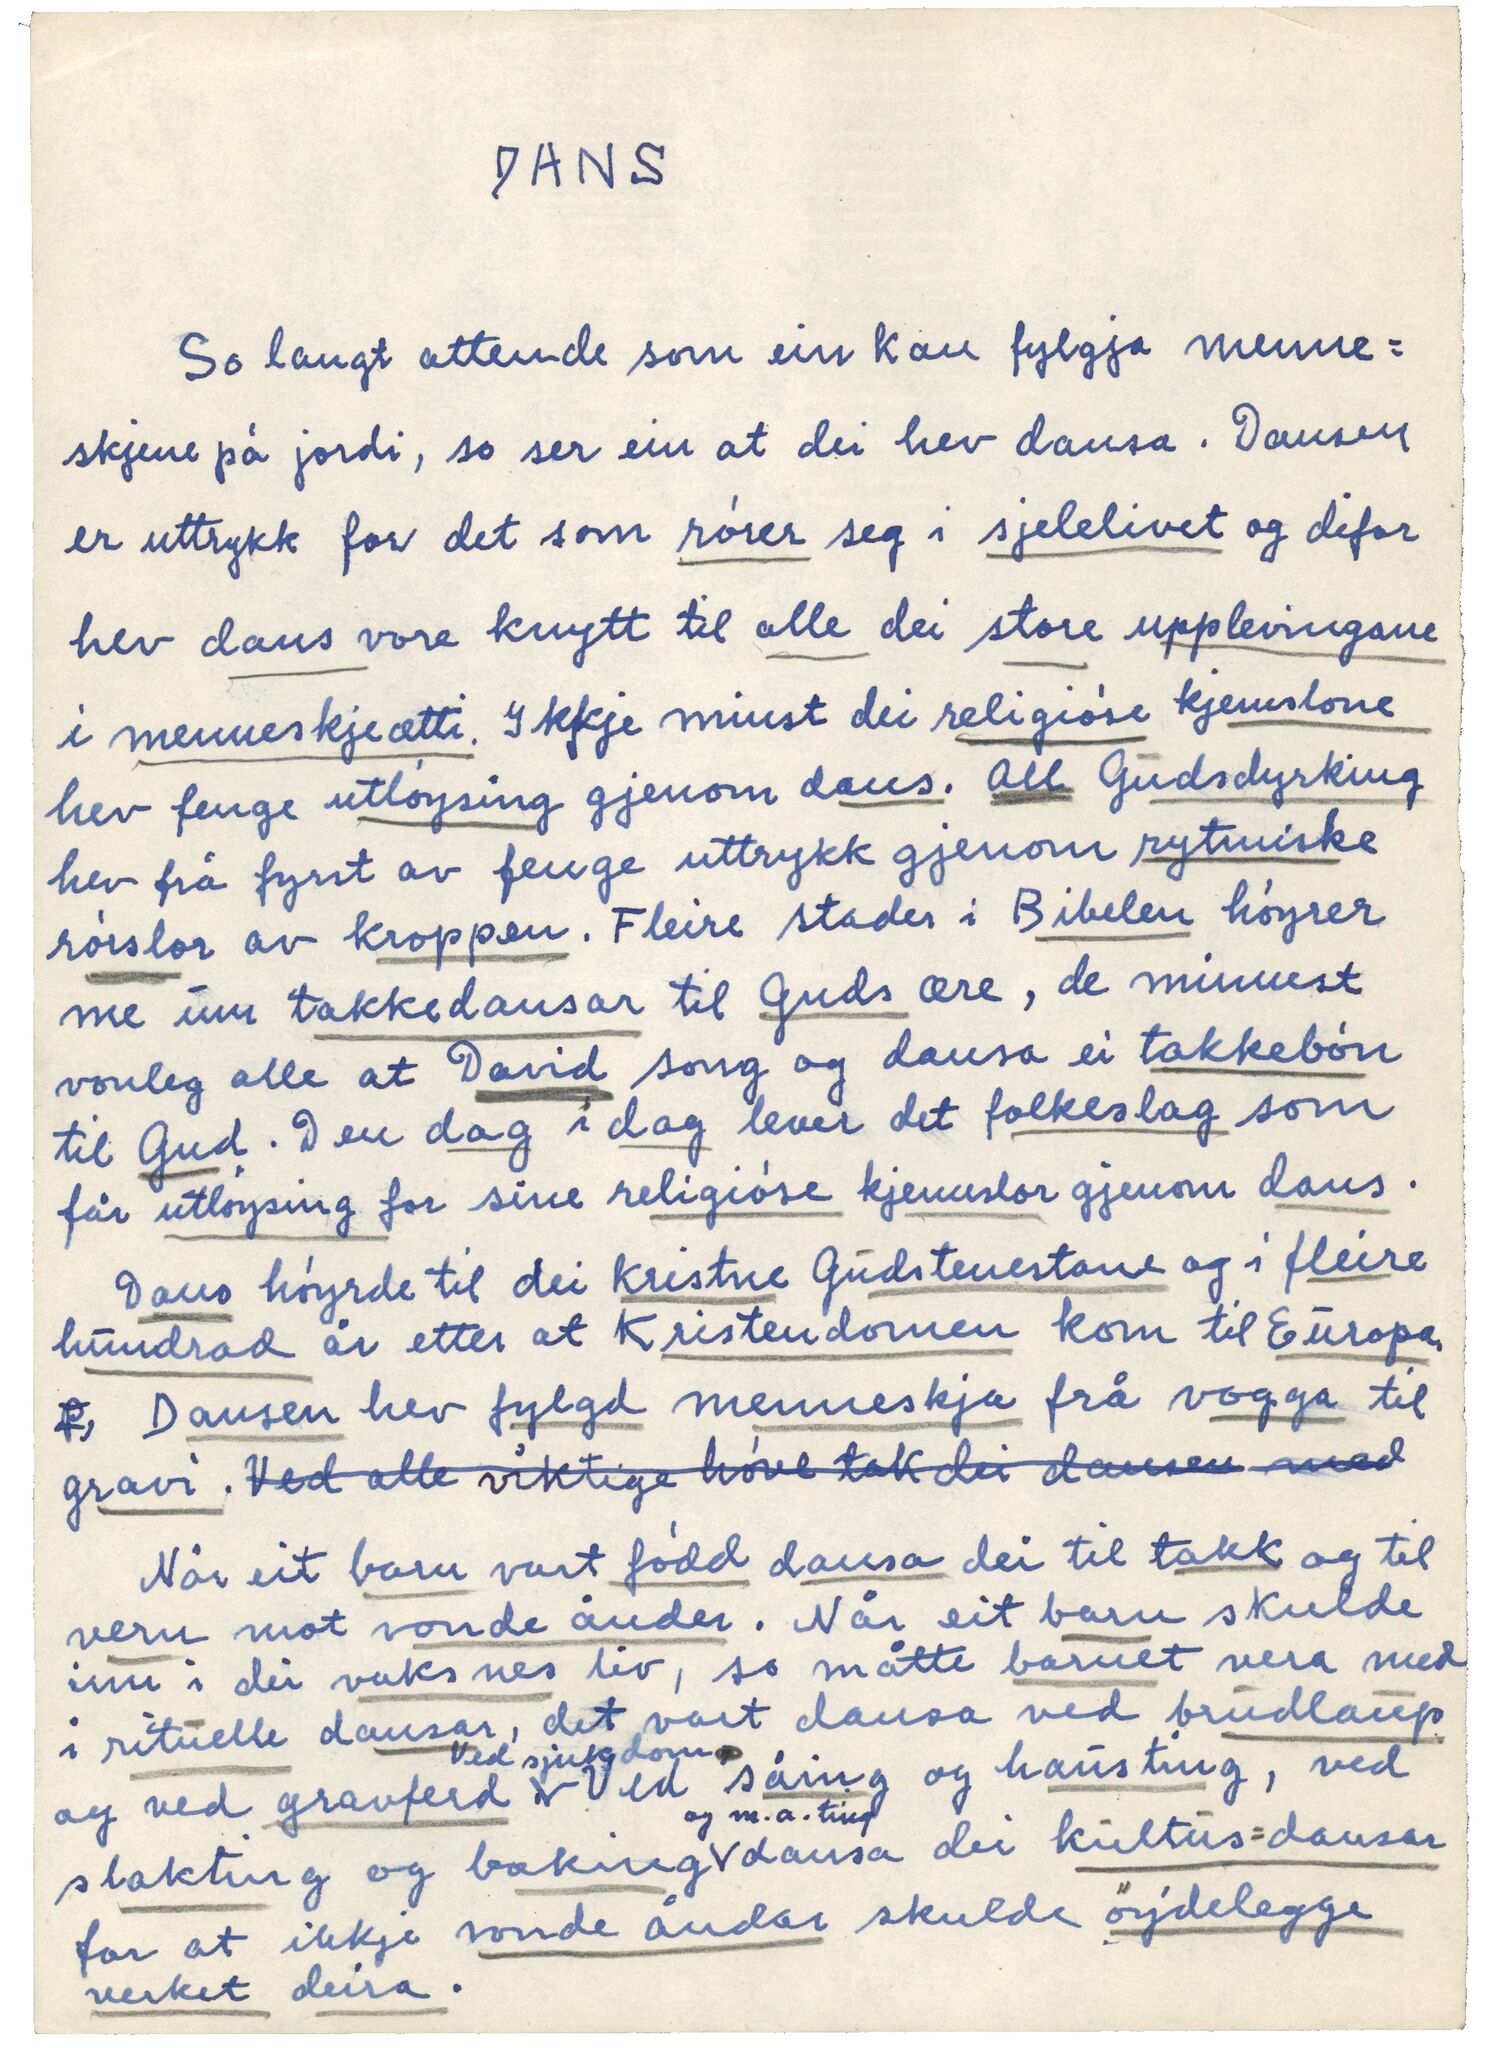 DANS
So langt attende som ein kan fylgja menne=
skjene på jordi, so ser ein at dei hev dansa. Dansen
er uttrykk for det som rórer seg i sjelelivet og difor
hev dans vore knytt til alle dei store upplevingane
i menneskjeætti. Ikkje minst dei religióse kjenslone
hev fenge utlóysing gjenom dans. All Gudsdyrking
hev frå fyrst av fenge uttrykk gjenom rytmiske
rórslor av kroppen. Fleire stader i Bibelen hóyrer
me um takkedansar til Guds ære, de minnest
vonleg alle at David song og dansa ei takkebón
til Gud. Den dag i dag lever det folkeslag som
får utlóysing for sine religióse kjenslor gjenom dans.
Dans hóyrde til dei kristne Gudstenestane og i fleire
hundrad år etter at Kristendomen kom til Europa.
Dansen hev fylgd menneskja frå vogga til
gravi. Ved alle viktige hóve tok dei dansen med
Når eit barn vart fódd dansa dei til takk og til
vern mot vonde ånder. Når eit barn skulde
inn i dei vaksnes liv, so måtte barnet vera med
i rituelle dansar, det vart dansa ved brudlaup
Ved sjukdom
og ved gravferd Ved såing og hausting, ved
og m.a. ting
slakting og baking dansa dei kultus=dansar
for at ikkje vonde åndar skulde öydelegge
verket deira.